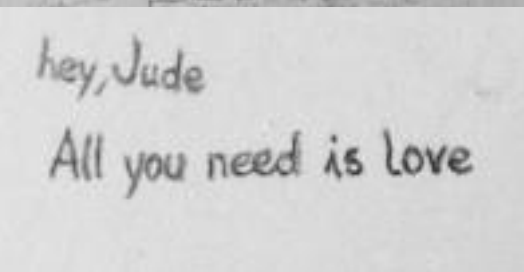 hey, Jude
All you need is love